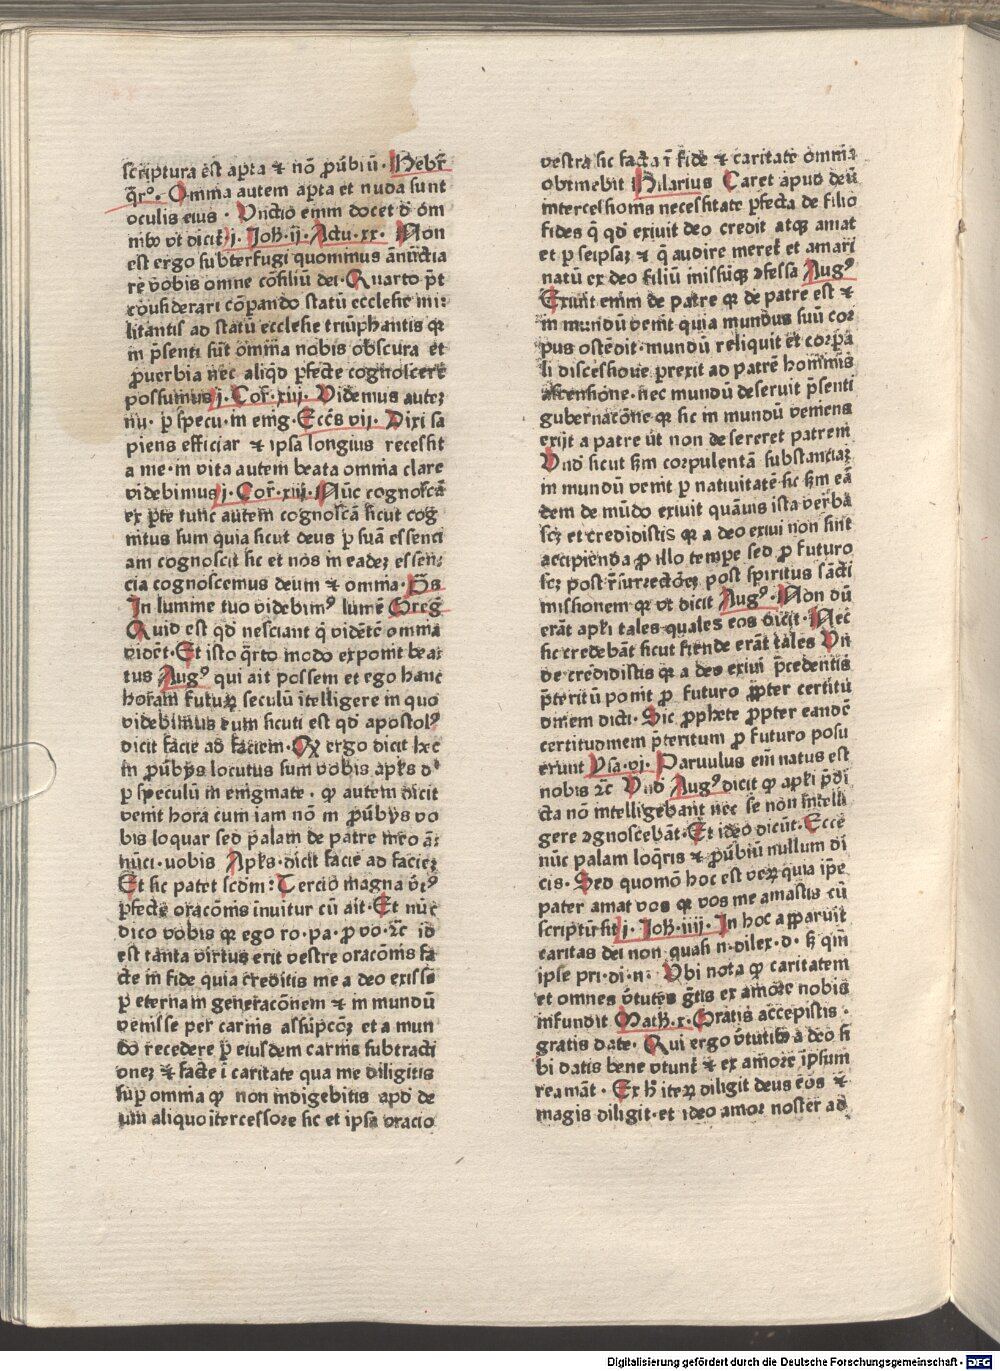 scriptura est apta ⁊ nō ꝓúbiū · Hebr̄
q̄r⁰. Omnia autem apta et nuda sunt
oculis eius · Unctio enim docet ō om
nibꝫ vt dicit j. Joh̄·ij· Actu·xx· Non
est ergo subterfugi quominus anūcia
rē vobis omne cōsiliū dei· Quarto p̄t
considerari cōꝑando statū ecclesie mi:
litantis ad statū ecclesie triūphantis qꝛ
in p̄senti sūt omnia nobis obscura et
ꝓuerbia nec aliqd̄ ꝑfecte cognoscere
possumus j· Cor̄·xiij· Videmus auteꝫ
nu· ꝑ specu·in enig· Eccs vij· Dixi sa
piens efficiar ⁊ ipsa longius recessit
a me·in vita autem beata omnia clare
videbimus j· Cor̄·xiij· Nūc cognoscā
ex ꝑte tunc autem cognoscā sicut cog
nitus sum quia sicut deus ꝑ suā essenci
am cognoscit sic et nos in eadeꝫ essen:
cia cognoscemus deum ⁊ omnia· Ps
In lumine tuo videbimꝰ lumē Greḡ
Quid est qd̄ nesciant q̄ vidētē omnia
vidēt· Et isto q̄rto modo exponit bea:
tus Augꝰ qui ait possem et ego hanc
horam futuꝝ seculū ītelligere in quo
videbimus eum sicuti est qd̄ apostolꝰ
dicit facie ad faciem· Qꝛ ergo dicit hec
in ꝓúbijs locutus sum vobis apl̄s dꝰ
ꝑ speculū in enigmate · qꝛ autem dicit
venit hora cum iam nō in ꝓúbijs vo
bis loquar sed palam de patre meo ā:
nūci·vobis Apl̄s·dicit facie ad facieꝫ
Et sic patet scdm: Tercio magna v̄tꝰ
ꝑfecte oracōnis īnuitur cū ait· Et nūc
dico vobis qꝛ ego ro·pa·ꝓ vo·ꝛc̄ id
est tanta virtus erit vestre oracōnis fa
cte in fide quia creditis me a deo exisse
ꝑ eternam generacōnem ⁊ in mundū
venisse per carnis assūpcōꝫ et a mun
do recedere ꝑ eiusdem carnis subtracti
oneꝫ ⁊ facte ī caritate qua me diligitis
sup̄ omnia qꝛ non indigebitis apd̄ de
um aliquo ītercessore sic et ipsa oracio
vestra sic facta ī fide ⁊ caritate omnia
obtinebit Hilarius Caret apud deū
intercessionis necessitate ꝑfecta de filio
fides q̄ qd̄ exiuit deo credit atqꝫ amat
et ꝑ seipsaꝫ ⁊ q̄ audire meret̄ et amari
natū ex deo filiū missūqꝫ ꝯfessa Augꝰ
Exiuit enim de patre qꝛ de patre est ⁊
in mundū venit quia mundus suū cor
pus ostēdit·mundū reliquit et corpa
li discessione ꝑrexit ad patrē hominis
ascensione·nec mundū deseruit p̄senti
gubernacōne qꝛ sic in mundū veniens
exijt a patre ut non desereret patrem
Vnd̄ sicut sm̄ corpulentā substanciaꝫ
in mundū venit ꝑ natiuitatē sic sm̄ eā
dem de mūdo exiuit quāuis ista verba
scꝫ et credidistis qꝛ a deo exiui non sint
accipienda ꝓ illo tempe sed ꝓ futuro
scꝫ post r̄surrectōeꝫ post spiritus sācti
missionem qꝛ vt dicit Augꝰ· Non dū
erāt apl̄i tales quales eos dicit· Nec
sic credebāt sicut siende erāt tales Vn̄
de crēdidistis qꝛ a deo exiui p̄cedentis
p̄teritū ponit ꝓ futuro ꝓpter certitu
dinem dicti· Sic ꝓphete ꝓpter eandē
certitudinem p̄teritum ꝓ futuro posu
erunt Ysa·vj· Paruulus eī natus est
nobis ꝛc̄ Vnd̄ Augꝰ dicit qꝛ apl̄i p̄di
cta nō intelligebant nec se non intelli
gere ꝯgnoscebāt· Et ideo dicūt· Ecce
nūc palam loq̄ris ⁊ ꝓúbiū nullum di
cis· Sed quomō hoc est veꝝ quia ip̄e
pater amat vos qꝛ vos me amastis cū
scriptū sit j· Joh̄·iiij· In hoc apparuit
caritas dei non quasi n·dilex·d· sꝫ qm̄
ipse pri·di·n· Vbi nota qꝛ caritatem
et omnes v̄tutes gr̄tis ex amore nobis
infundit Math̄·x· Gratis accepistis ·
gratis date· Qui ergo v̄tutibꝫ a deo si
bi datis bene vtunt̄ ⁊ ex amore ipsum
reamāt· Ex h̄ iteꝝ diligit deus eos ⁊
magis diligit·et ideo amor noster ad
Digitalisierung gefördert durch die Deutsche Forschungsgemeinschaft - DFG